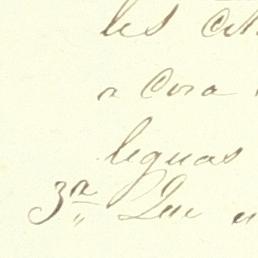 les
a Cora
leguas
3ª Que